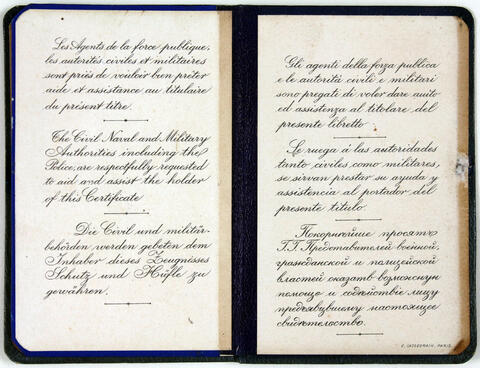 Les Agents de la force publique,
les autorités civiles et militaires
sont priés de vouloir bien prêter
aide et assistance au titulaire
du présent titre.
The Civil Naval and Military
Authorities including the
Police, are respectfully requested
to aid and assist the holder
of this Certificate
Die Civil und militär-
behörden, werden gebeten dem
Inhaber dieses Zeugnisses
Schutz und Hüfle zu
gewähren.
Gli agenti della forza publica
e le autorità civili e militari
sono pregati di voler dare auito
ed assistenza al titolare del
presente libretto
Se ruega á las autoridades
tanto civiles como militares,
se sirvan prestar su ayuda y
assistencia al portador del
presente titulo.
Покорнѣйше просятъ
Г.Г. Представителей военной,
гражданской и полицейской
властей оказать возможную
помощь и содѣйствіе лицу
предъявившему настоящее
свидѣтельство.
C. CASSEGRAIN, PARIS.